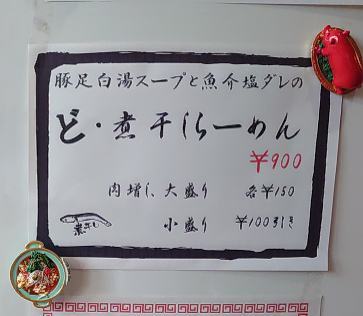 豚足白湯スープと魚介塩ダレの
ど・煮干しらーめん
￥900
肉増し、大盛り 各￥150
煮干し
小盛り ￥100引き